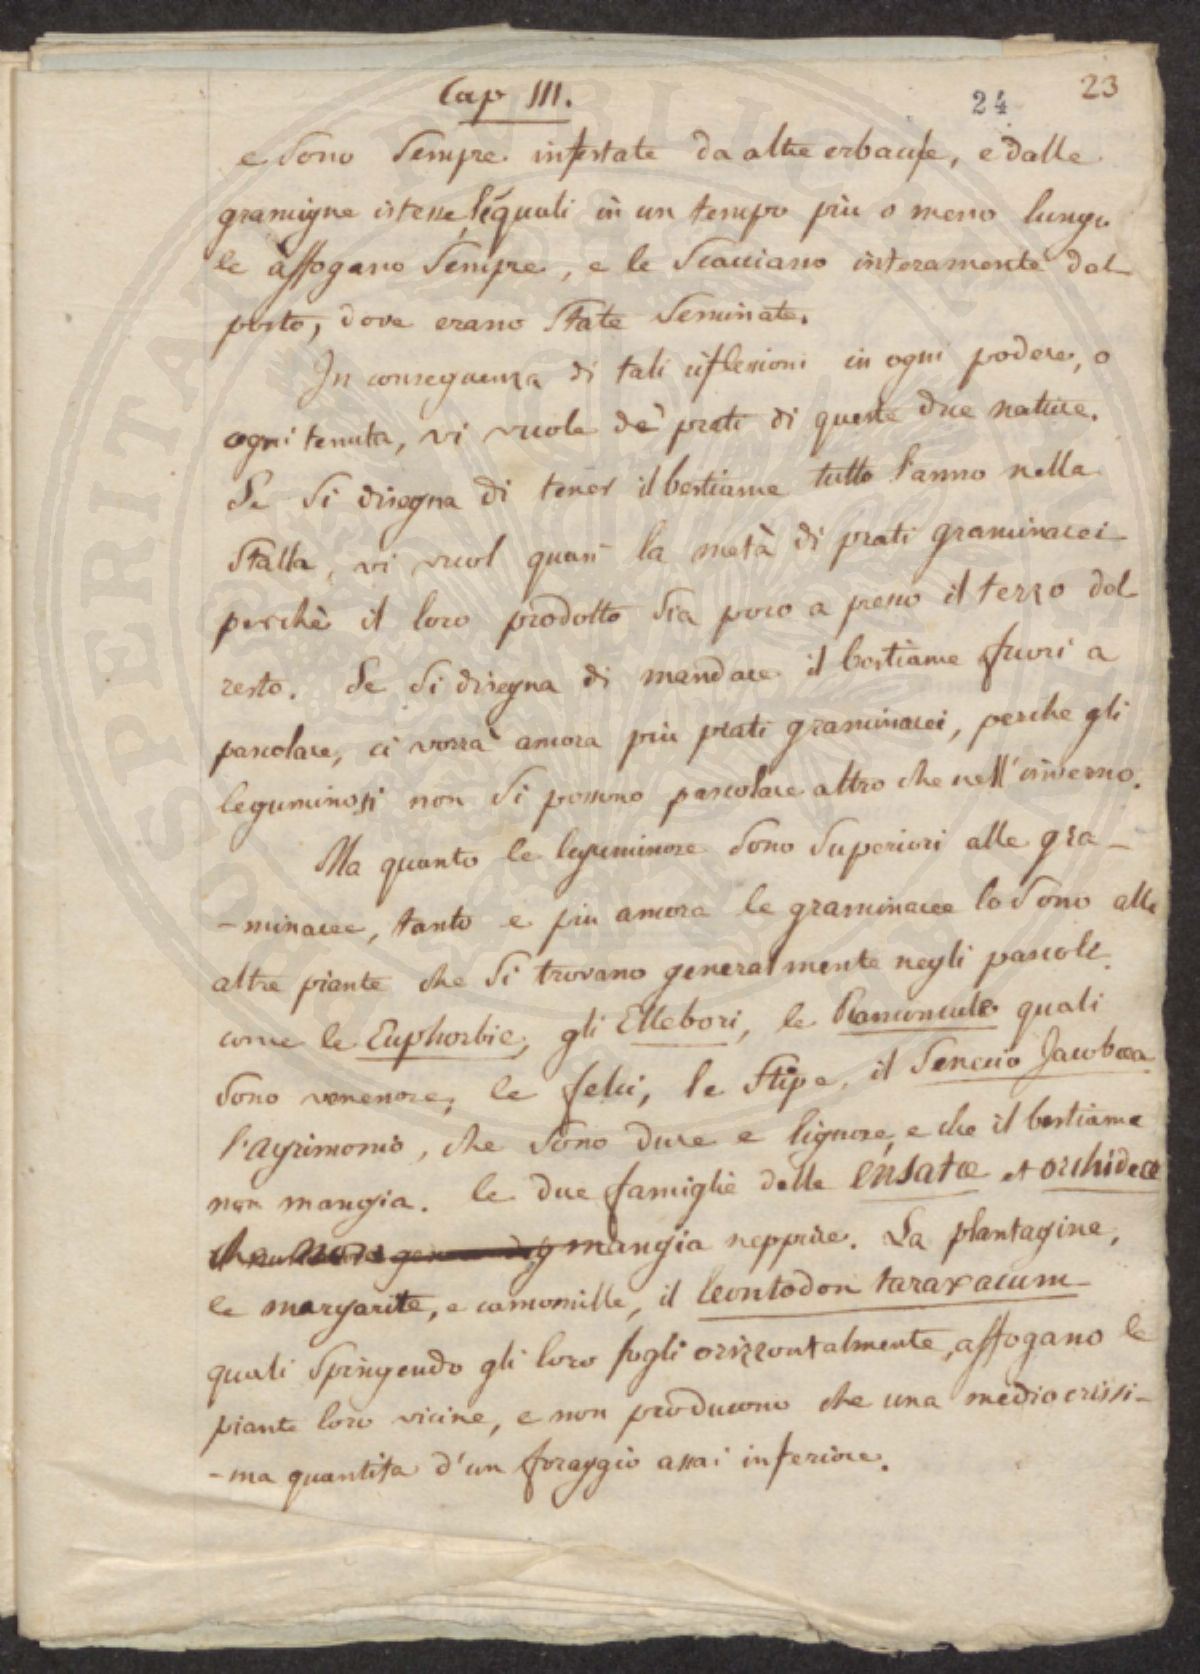 Cap III.
24
23
e sono sempre infestate da altre erbacce, e dalle
gramigne istesse, le quali in un tempo più o meno lungo
le affogano sempre, e le scacciano interamente dal
posto, dove erano state seminate.
In conseguenza di tali riflessioni in ogni podere, o
ogni tenuta, vi vuole de' prati di queste due nature.
Se si disegna di tener il bestiame tutto l'anno nella
stalla, vi vuol quasi la metà di prati graminacei
perchè il loro prodotto sia poco a presso il terzo del
resto. Se si disegna di mandare il bestiame fuori a
pascolare, ci vorrà ancora più prati graminacei, perche gli
leguminosi non si possono pascolare altro che nell'inverno.
Ma quanto le leguminose sono superiori alle gra-
-minacee, tanto e più ancora le graminacee lo sono alle
altre piante che si trovano generalmente negli pascoli.
come le Euphorbie, gli Ellebori, le Ranuncule quali
sono venenose; le felci, le stipe, il Senecio Jacobæa
l'agrimonio, che sono dure e lignose, e che il bestiame
non mangia. le due famiglie delle Ensatæ et orchideæ
mangia neppure. La plantagine,
le margarite, e camomille, il leontodon taraxacum
quali spingendo gli loro fogli orizzontalmente, affogano le
piante loro vicine, e non producono che una mediocrissi-
-ma quantita d'un foraggio assai inferiore.
PUBLICAE
PROSPERITATI